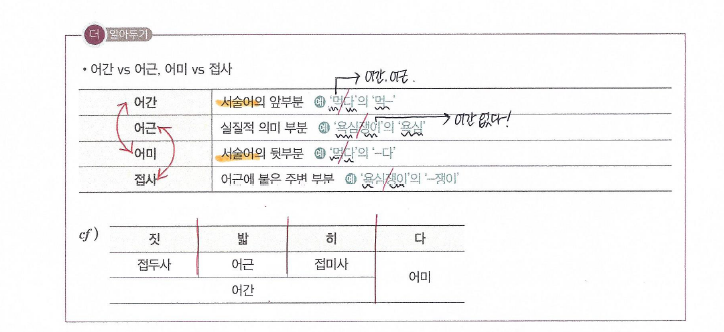 더 알아두기
• 어간 vs 어근, 어미 vs 접사
어간.어근.
어간 서술어의 앞부분 예 '먹다'의 '먹–'
어근 실질적 의미 부분 예 '욕심쟁이'의 '욕심' 어간 없다!
어미 서술어의 뒷부분 예 '먹다'의 '–다'
접사 어근에 붙은 주변 부분 예 '욕심쟁이'의 '–쟁이'
cf) 짓 밟 히 다
접두사 어근 접미사 어미
어간